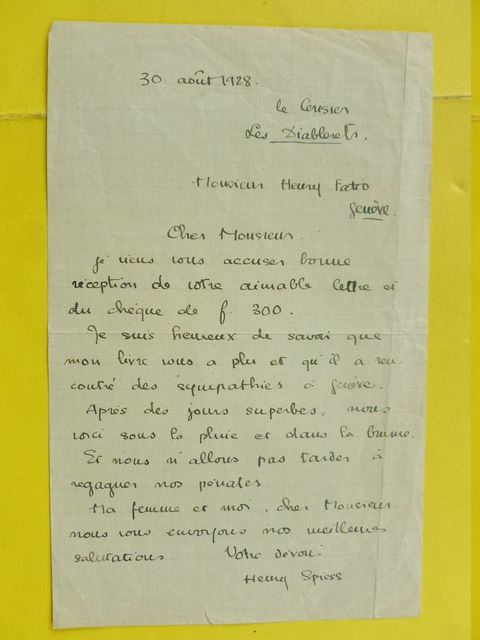 30 août 1928.
le Cerisier
Les Diablerets.
Monsieur Henry Fatio
Genève.
Cher Monsieur.
je viens vous accuser bonne
réception de votre aimable lettre et
du chèque de f. 300.
Je suis heureux de savoir que
mon livre vous a plu et qu'il a ren
contré des sympathies à Genève.
Après des jours superbes, nous
voici sous la pluie et dans la brume.
Et nous n'allons pas tarder à
regagner nos pénates
Ma femme et moi, cher Monsieur
nous vous envoyons nos meilleures
salutations. Votre dévoué
Henry Spiess